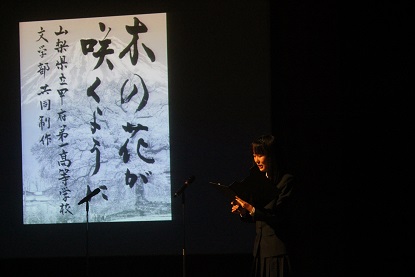 木の花が
咲くようだ
山梨県立甲府第一高等学校
文学部 共同制作